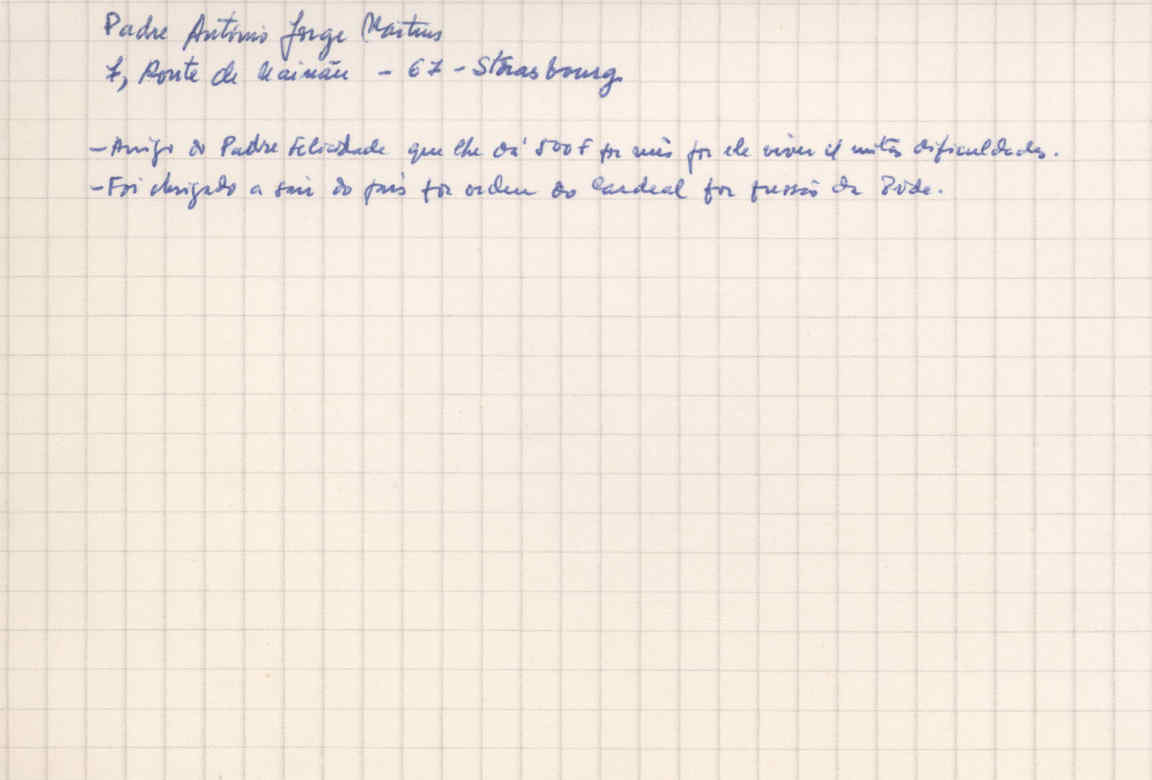 Padre António Jorge Martins
7, Route de - 67 - Strasbourg
- Amigo do Padre Felicidade que lhe dá 500 F por mês por ele viver c/ muitas dificuldades.
- Foi obrigado a sair do país por ordem do Cardeal por pressão da Pide.